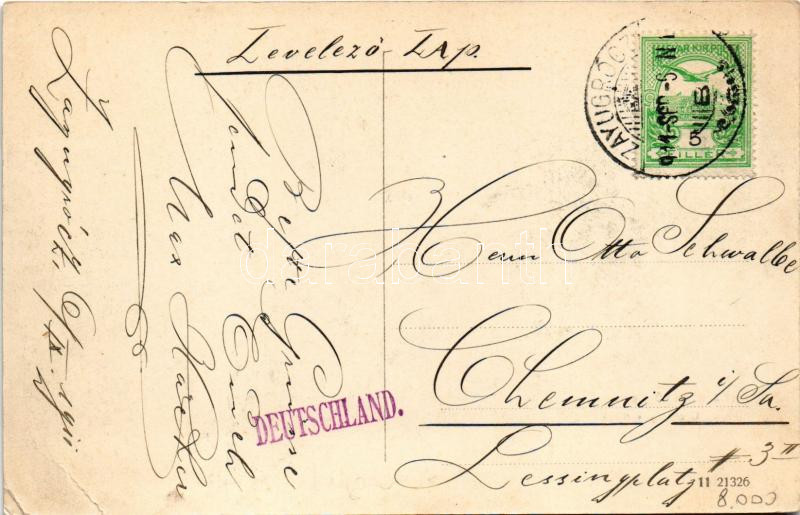 Levelező-Lap.
Zayugrócz, 6/IX. 1911
Beste Grüsse
sendet Euch
Max
ZAYUGRÓCZ
911 SEP -6 N
B
MAGYAR KIR. POSTA
5
FILLÉR
Herrn Otto Schwalbe
Chemnitz i/Sa.
Lessingplatz # 3 II
DEUTSCHLAND.
11 21326
8.000
darabanth